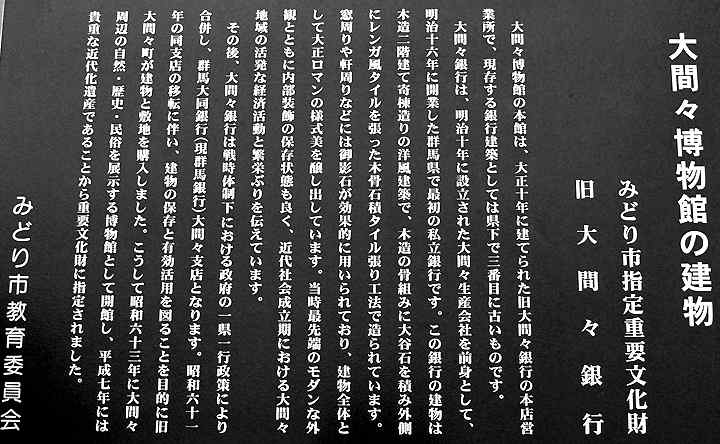 大間々博物館の建物
みどり市指定重要文化財
旧大間々銀行
大間々博物館の本館は、大正十年に建てられた旧大間々銀行の本店営
業所で、現存する銀行建築としては県下で三番目に古いものです。
大間々銀行は、明治十年に設立された大間々生産会社を前身として、
明治十六年に開業した群馬県で最初の私立銀行です。この銀行の建物は
木造二階建て寄棟造りの洋風建築で、木造の骨組みに大谷石を積み外側
にレンガ風タイルを張った木骨石積タイル張り工法で造られています。
窓周りや軒周りなどには御影石が効果的に用いられており、建物全体と
して大正ロマンの様式美を醸し出しています。当時最先端のモダンな外
観とともに内部装飾の保存状態も良く、近代社会成立期における大間々
地域の活発な経済活動と繁栄ぶりを伝えています。
その後、大間々銀行は戦時体制下における政府の一県一行政策により
合併し、群馬大同銀行(現群馬銀行)大間々支店となります。昭和六十一
年の同支店の移転に伴い、建物の保存と有効活用を図ることを目的に旧
大間々町が建物と敷地を購入しました。こうして昭和六十三年に大間々
周辺の自然・歴史・民俗を展示する博物館として開館し、平成七年には
貴重な近代化遺産であることから重要文化財に指定されました。
みどり市教育委員会